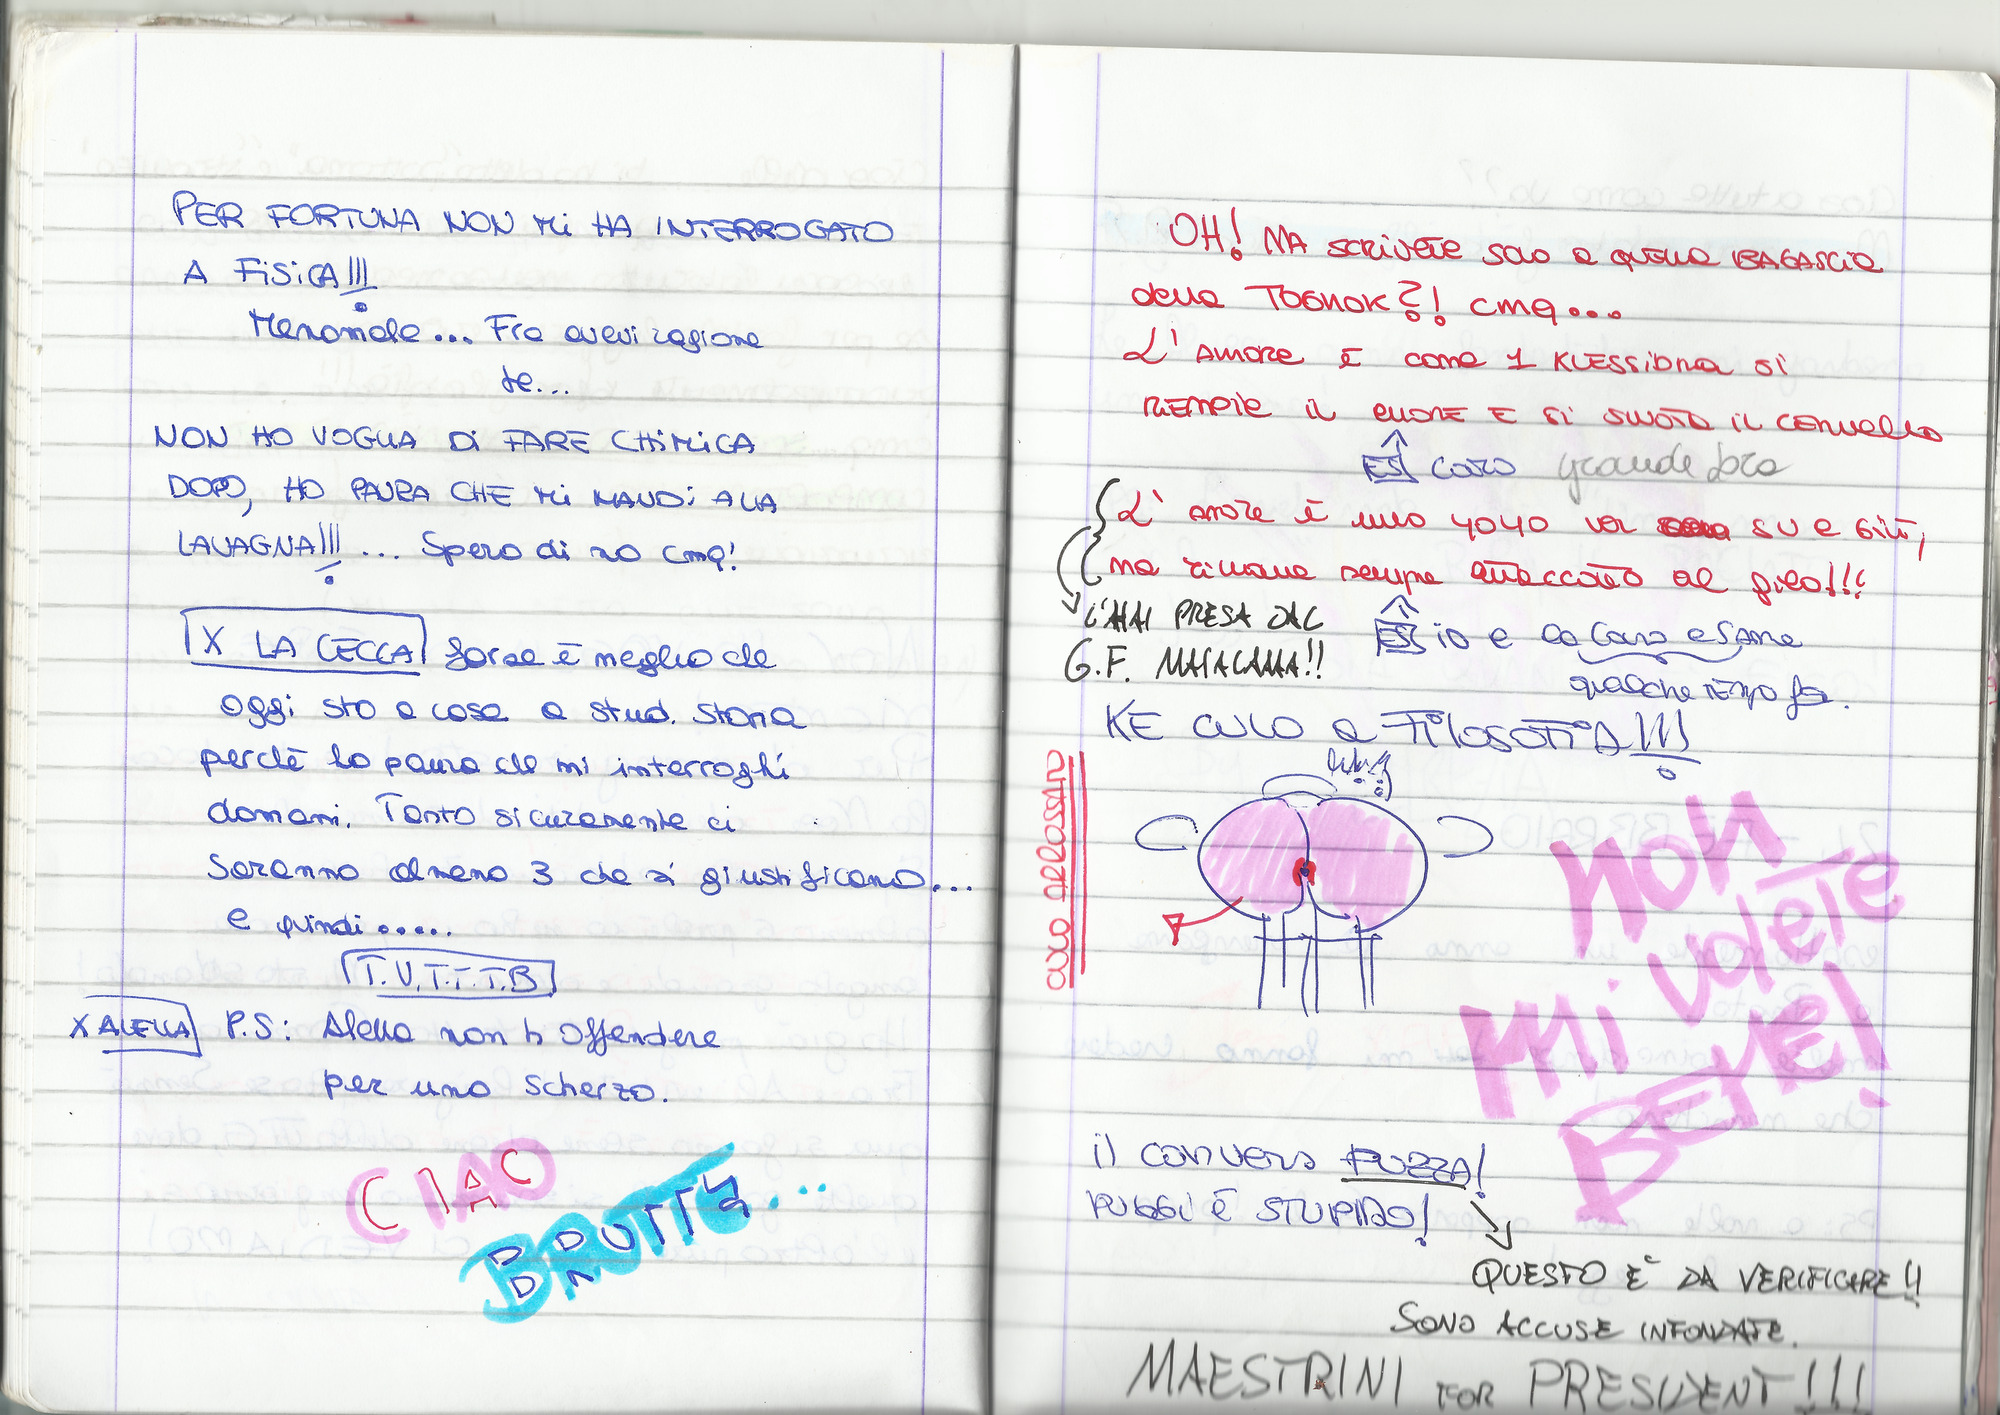 PER FORTUNA NON Mi HA INTERROGATO
A FiSiCA!!!
Menomale... Fra avevi ragione
te...
NON HO VOGLIA Di FARE CHiMiCA
DOPO, HO PAURA CHE Mi MANDi ALLA
LAVAGNA!!! ... Spero di no cmq!
X LA CECCA forse è meglio che
oggi sto a casa a stud. storia
perchè ho paura che mi interroghi
domani. Tanto sicuramente ci
saranno almeno 3 che si giustificano...
e quindi.....
T.V.T.T.T.B
X ALELLA P.S: Alella non ti offendere
per uno scherzo.
CIAO
BRUTTE...
OH! MA SCRIVETE SOLO A QUELLA BAGASCIA
della TOGNOK?! CMQ...
L' AMORE È COME 1 KLESSIDRA SI
RIEMPIE IL CUORE E SI SVUOTA IL CERVELLO
ES CARO grande
L' AMORE È UNO YOYO VA SU E GIÙ,
MA RIMANE SEMPRE ATTACCATO AL FILO!!!
L'HAI PRESA DAL
G.F. MAIALANA!!
ES io e
qualche TEMPO fa.
KE CULO A FiLOSOFiA!!!
CULO ARROSSATO
NON
MI VOLETE
BENE!
il CONVERS PUZZA!
PUGGI È STUPIDO!
QUESTO E' DA VERIFICARE!!
SONO ACCUSE INFONDATE.
MAESTRINI FOR PRESIDENT!!!